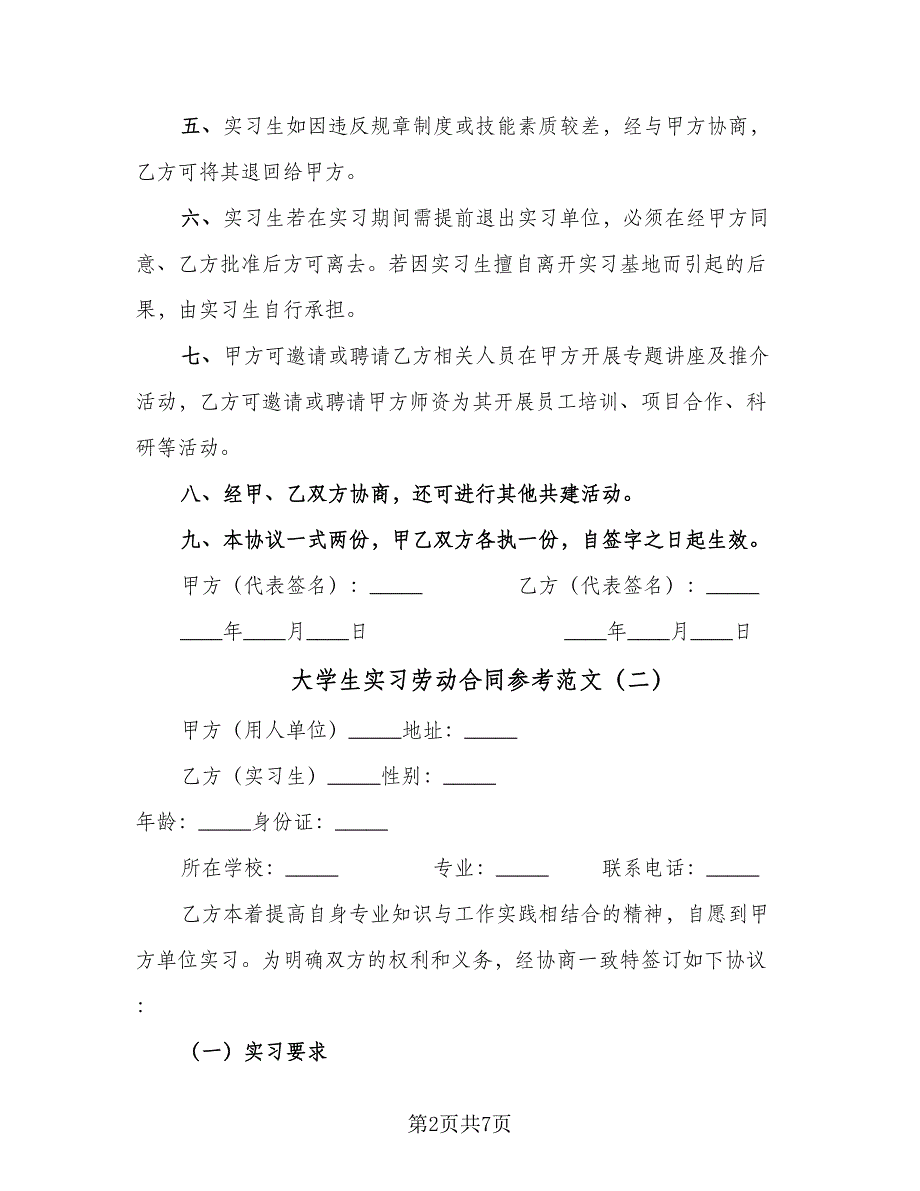 五、实习生如因违反规章制度或技能素质较差，经与甲方协商，
乙方可将其退回给甲方。
六、实习生若在实习期间需提前退出实习单位，必须在经甲方同
意、乙方批准后方可离去。若因实习生擅自离开实习基地而引起的后
果，由实习生自行承担。
七、甲方可邀请或聘请乙方相关人员在甲方开展专题讲座及推介
活动，乙方可邀请或聘请甲方师资为其开展员工培训、项目合作、科
研等活动。
八、经甲、乙双方协商，还可进行其他共建活动。
九、本协议一式两份，甲乙双方各执一份，自签字之日起生效。
甲方（代表签名）：_____ 乙方（代表签名）：_____
____年____月____日 ____年____月____日
大学生实习劳动合同参考范文（二）
甲方（用人单位）_____地址：_____
乙方（实习生）_____性别：_____
年龄：_____身份证：_____
所在学校：_____ 专业：_____ 联系电话：_____
乙方本着提高自身专业知识与工作实践相结合的精神，自愿到甲
方单位实习。为明确双方的权利和义务，经协商一致特签订如下协议
：
（一）实习要求
第2页共7页